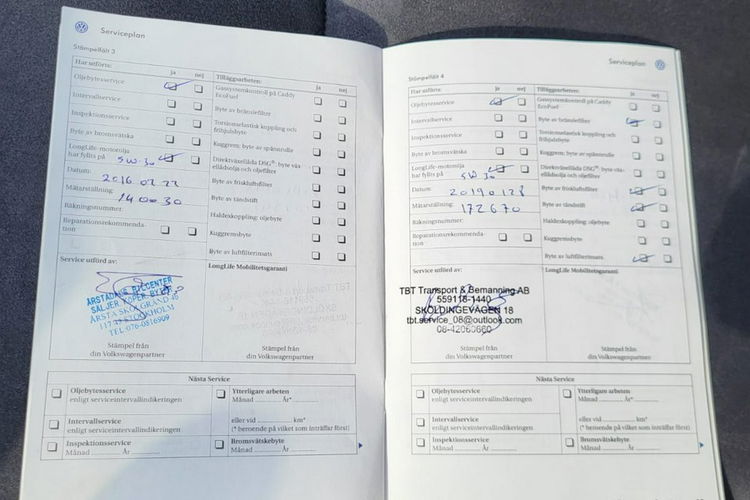 Serviceplan
Stämpelfält 3
Har utförts: ja nej
Oljebytesservice
Intervallservice
Inspektionsservice
Byte av bromsvätska
LongLife-motorolja
har fyllts på 5W30
Datum:
2016 02 22
Mätarställning:
140030
Räkningsnummer:
Reparationsrekommenda-
tion
Tilläggsarbeten: ja nej
Gassystemkontroll på Caddy
EcoFuel
Byte av bränslefilter
Torsionselastisk koppling och
frihjulsbyte
Kuggrem: byte av spännrulle
Direktväxellåda DSG®: byte växel-
ellådsolja och oljefilter
Byte av friskluftsfilter
Byte av tändstift
Haldexkoppling: oljebyte
Kuggremsbyte
Byte av luftfilterinsats
Service utförd av:
ÅRSTADALS BILCENTER
SÄLJER KÖPER BYTER
ÅRSTA SKOLGRÄND
STOCKHOLM
TEL: 076-0816909
Stämpel från
din Volkswagenpartner
LongLife Mobilitetsgaranti
Stämpel från
din Volkswagenpartner
Nästa Service
Oljebytesservice
enligt serviceintervallindikeringen
Intervallservice
enligt serviceintervallindikeringen
Inspektionsservice
Månad År
Ytterligare arbeten
Månad År*
eller vid km*
(* beroende på vilket som inträffar först)
Bromsvätskebyte
Månad År
Serviceplan
Stämpelfält 4
Har utförts: ja nej
Oljebytesservice
Intervallservice
Inspektionsservice
Byte av bromsvätska
LongLife-motorolja
har fyllts på 5W30
Datum:
20190128
Mätarställning:
172670
Räkningsnummer:
Reparationsrekommenda-
tion
Tilläggsarbeten: ja nej
Gassystemkontroll på Caddy
EcoFuel
Byte av bränslefilter
Torsionselastisk koppling och
frihjulsbyte
Kuggrem: byte av spännrulle
Direktväxellåda DSG®: byte väx-
ellådsolja och oljefilter
Byte av friskluftsfilter
Byte av tändstift
Haldexkoppling: oljebyte
Kuggremsbyte
Byte av luftfilterinsats
Service utförd av:
TBT Transport & Bemanning AB
559118-1440
SKOLDINGEVÄGEN 18
tbt.service_08@outlook.com
08-42060660
Stämpel från
din Volkswagenpartner
LongLife Mobilitetsgaranti
Stämpel från
din Volkswagenpartner
Nästa Service
Oljebytesservice
enligt serviceintervallindikeringen
Intervallservice
enligt serviceintervallindikeringen
Inspektionsservice
Månad År
Ytterligare arbeten
Månad År*
eller vid km*
(* beroende på vilket som inträffar först)
Bromsvätskebyte
Månad År